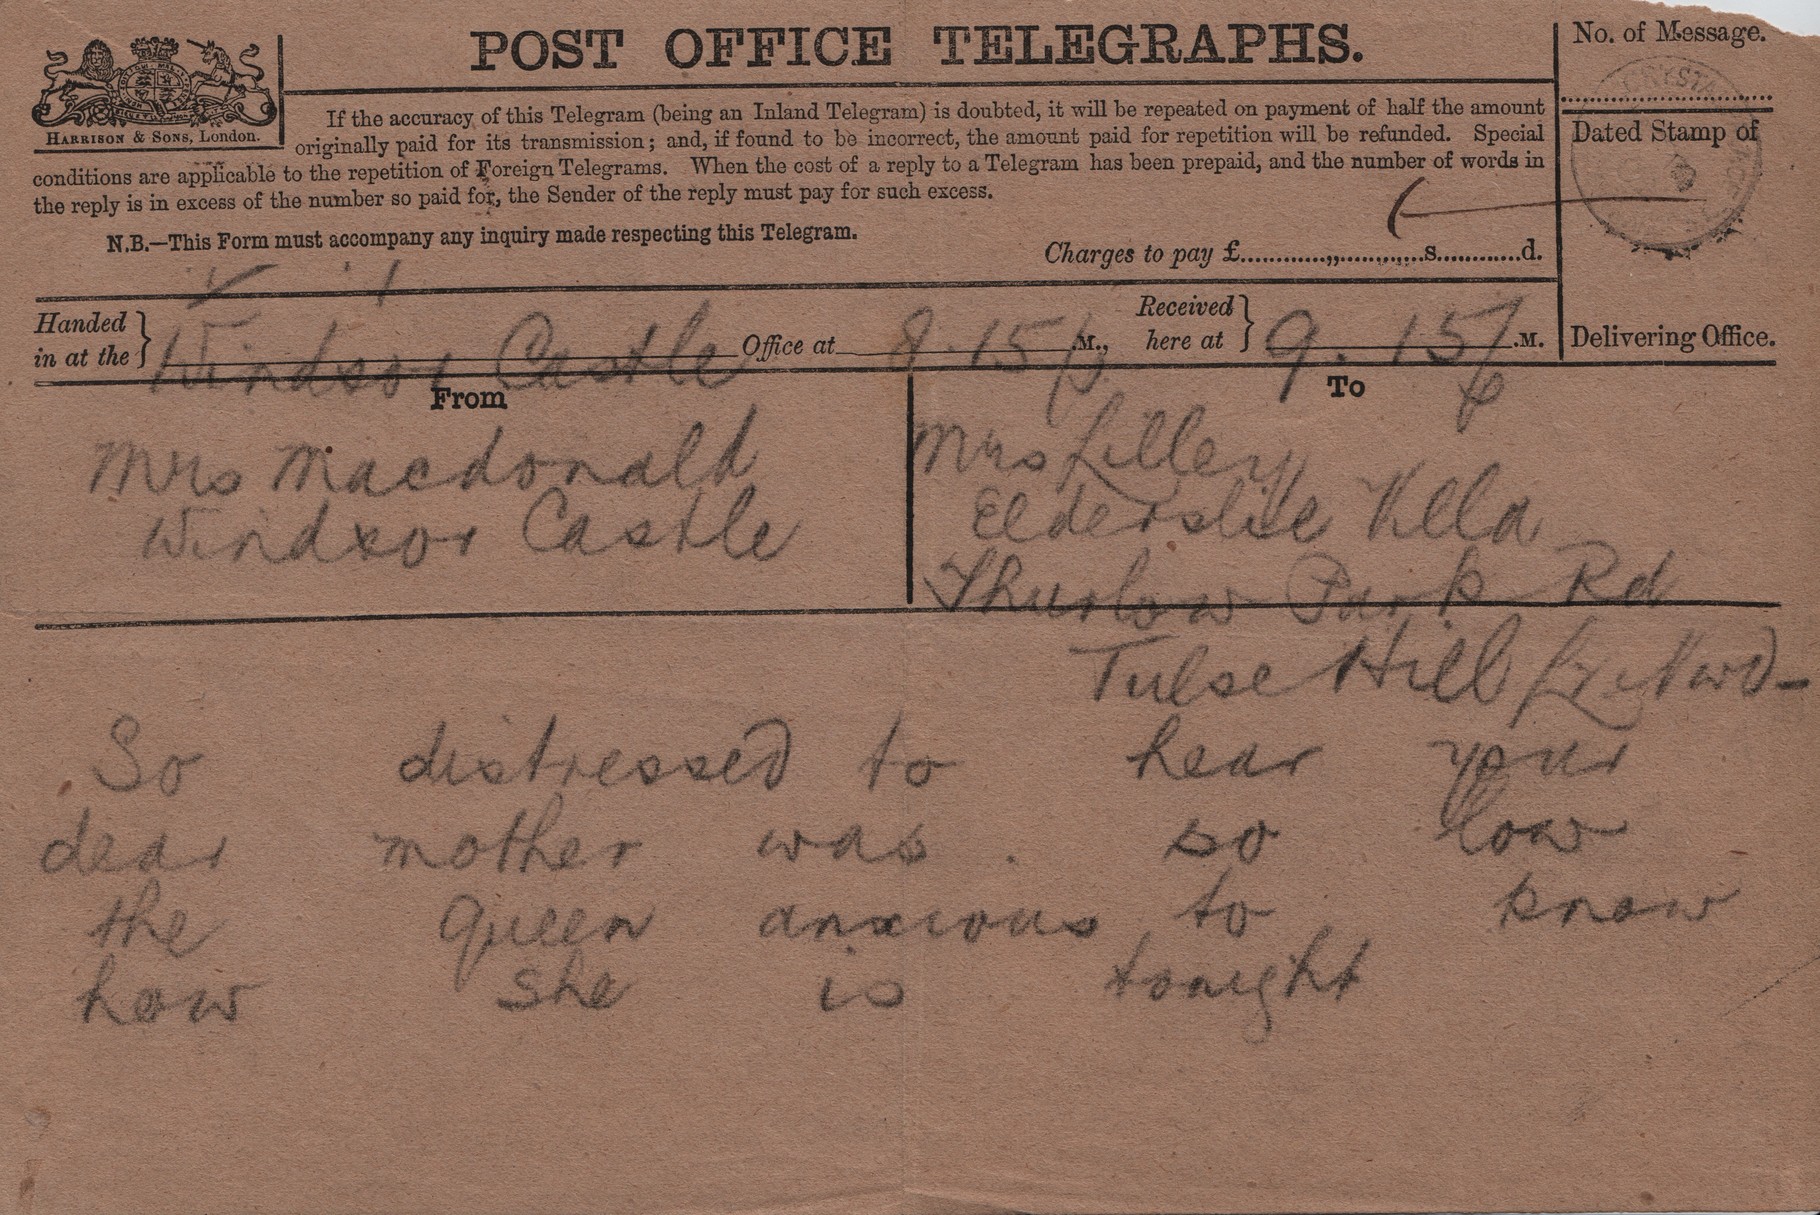 POST OFFICE TELEGRAPHS.
No. of Message.
HARRISON & SONS, London.
If the accuracy of this Telegram (being an Inland Telegram) is doubted, it will be repeated on payment of half the amount
originally paid for its transmission; and, if found to be incorrect, the amount paid for repetition will be refunded. Special
conditions are applicable to the repetition of Foreign Telegrams. When the cost of a reply to a Telegram has been prepaid, and the number of words in
the reply is in excess of the number so paid for, the Sender of the reply must pay for such excess.
N.B.—This Form must accompany any inquiry made respecting this Telegram.
Charges to pay £............,,............s............d.
Dated Stamp of
Delivering Office.
Handed in at the } Windsor Castle Office at 8.15 p .M., Received here at } 9.15 p .M.
From
Mrs Macdonald
Windsor Castle
To
Mrs Lilley
Elderslie Villa
Thurlow Park Rd
Tulse Hill
So distressed to hear your
dear mother was so low
the queen anxious to know
how she is tonight